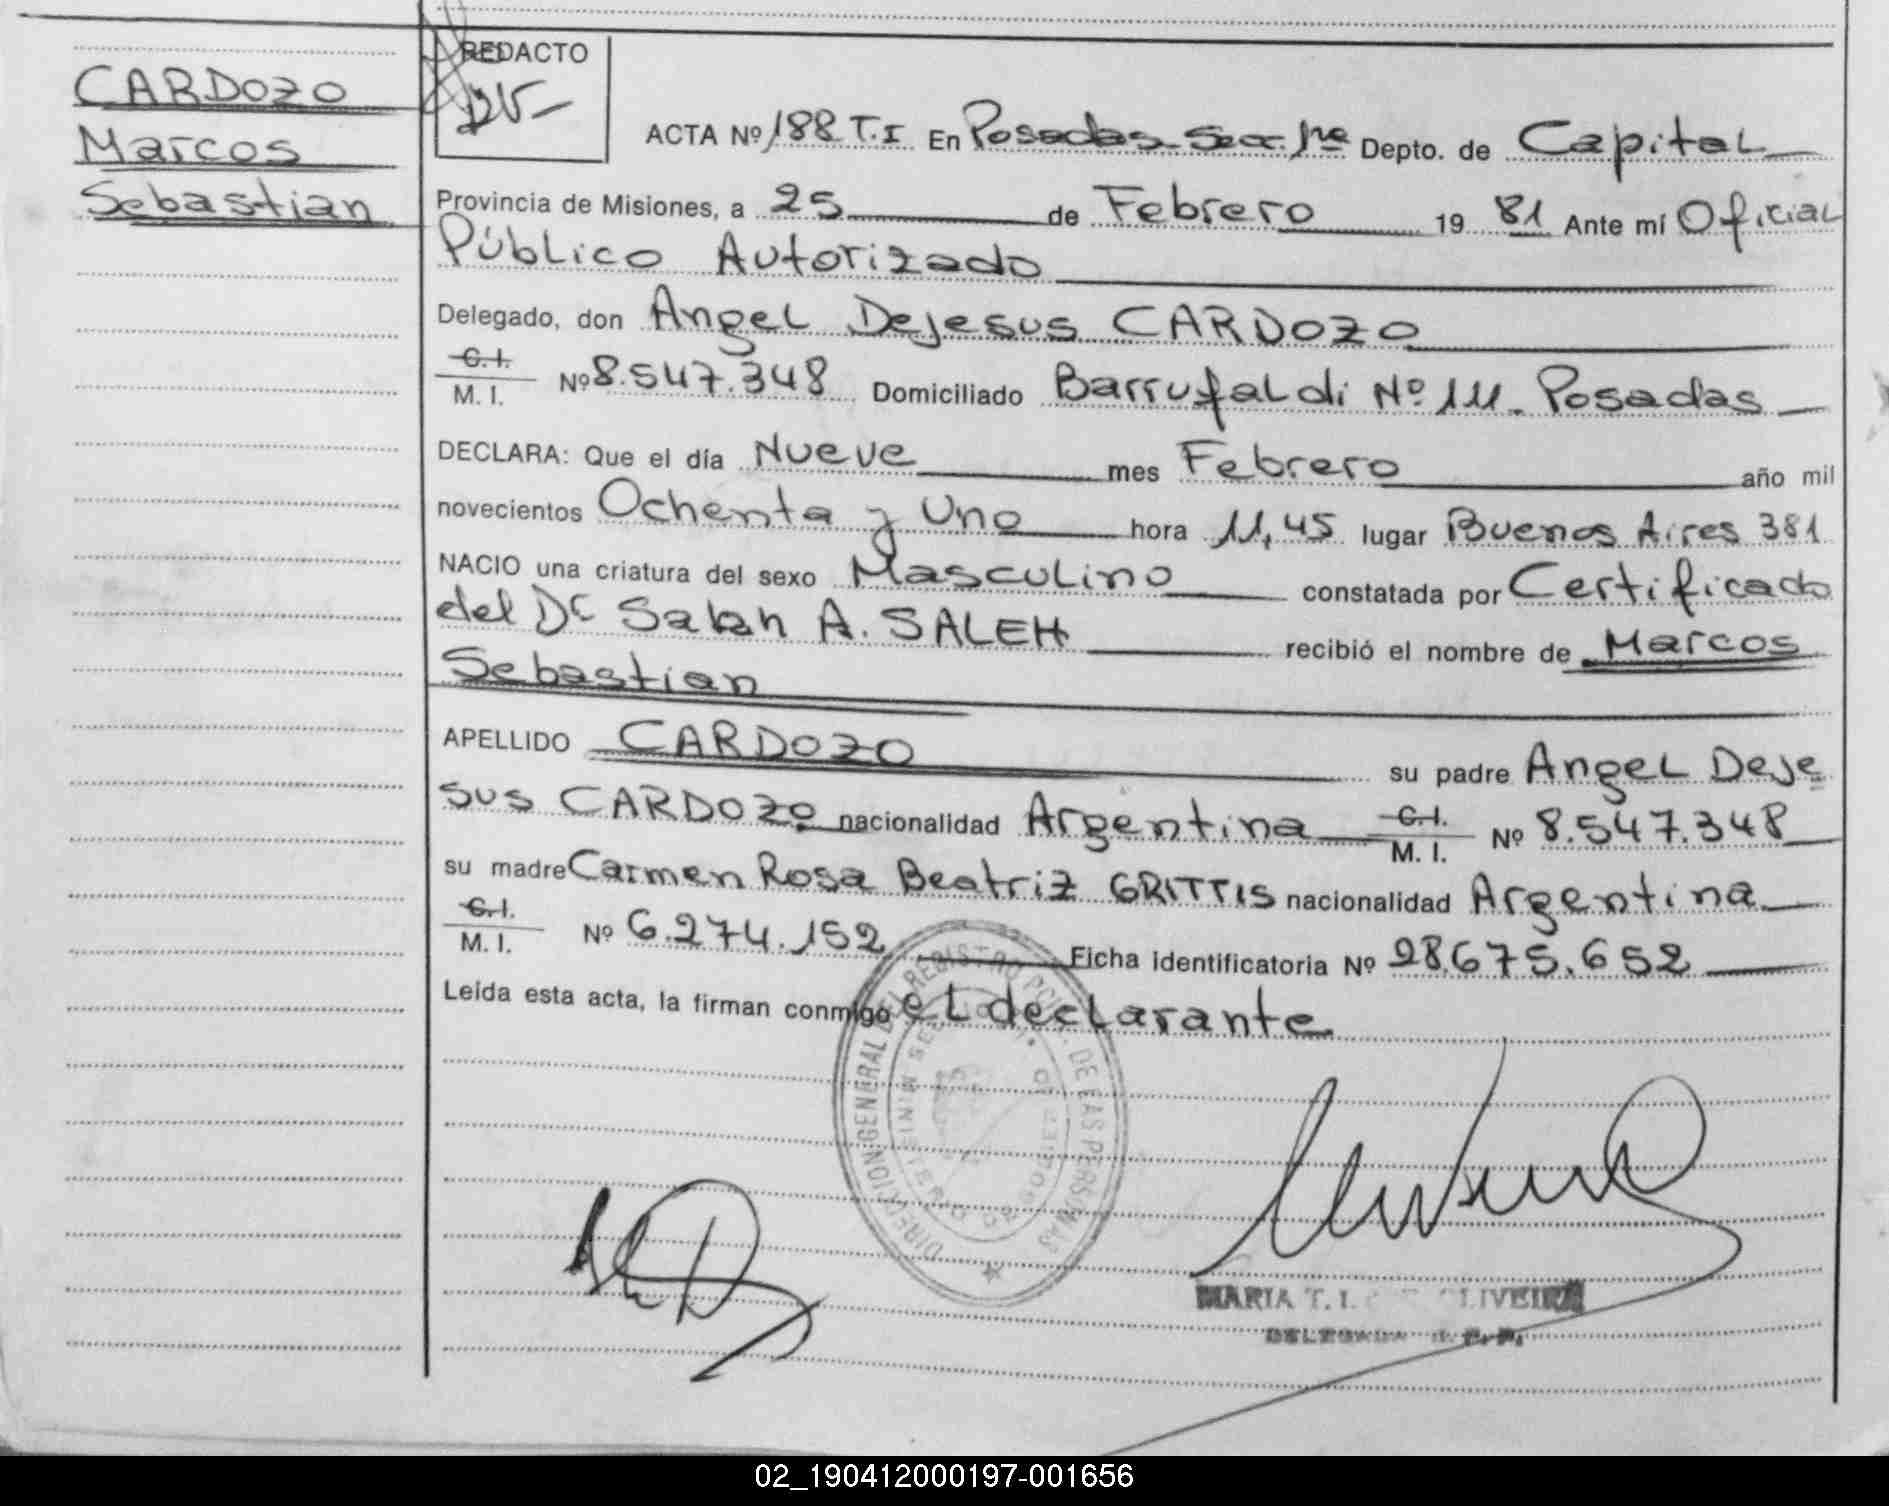 CARDOZO
Marcos
Sebastian
REDACTO
ACTA Nº 188 T.I En Posadas Sec. 1ra Depto. de Capital
Provincia de Misiones, a 25 de Febrero 19 81 Ante mí Oficial
Público Autorizado
Delegado, don Angel Dejesus CARDOZO
C.I.
M. I. Nº 8.547.348 Domiciliado Barrufaldi Nº 111. Posadas
DECLARA: Que el día Nueve mes Febrero año mil
novecientos Ochenta y Uno hora 11,45 lugar Buenos Aires 381
NACIO una criatura del sexo Masculino constatada por Certificado
del Dr Salah A. SALEH recibió el nombre de Marcos
Sebastian
APELLIDO CARDOZO su padre Angel Deje
sus CARDOZO nacionalidad Argentina C.I. M. I. Nº 8.547.348
su madre Carmen Rosa Beatriz GRITTIS nacionalidad Argentina
C.I.
M. I. Nº 6.274.152 Ficha identificatoria Nº 28.675.652
Leída esta acta, la firman conmigo el declarante
DIRECCION GENERAL DEL REGISTRO PCIAL. DE LAS PERSONAS
MINISTERIO DE GOBIERNO
MARIA T. I. OLIVEIRA
DELEGADA R. P. P.
02_190412000197-001656